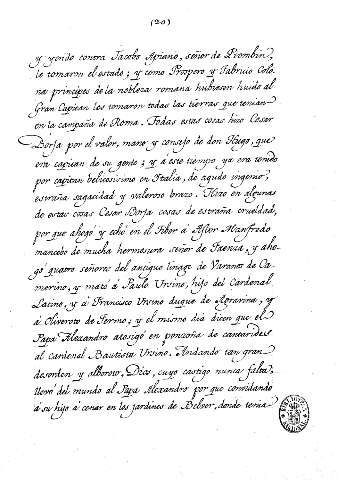 (20)
y yendo contra Jacobo Apiano, señor de Piombin,
le tomaron el estado; y como Prospero y Fabricio Colo
na principes de la nobleza romana hubiesen huido al
Gran Capitan les tomaron todas las tierras que tenian
en la campaña de Roma. Todas estas cosas hizo Cesar
Borja por el valor, mano y consejo de don Hugo, que
era capitan de su gente; y a este tiempo ya era tenido
por capitan belicosisimo en Italia, de agudo ingenio,
estraña sagacidad y valeroso brazo. Hizo en algunas
de estas cosas Cesar Borja cosas de estraña crueldad,
por que ahogó y echó en el Tibor á Astor Manfredo
mancebo de mucha hermosura señor de Faenza, y aho
gó quatro señores del antiguo linage de Varanos de Ca
merino, y mató á Paulo Ursino, hijo del Cardenal
Latino, y á Francisco Ursino duque de Agravina, y
á Oliveroto de Fermo; y el mismo dia dicen que el
Papa Alexandro atosigó en ponzoña de cantarides
al cardenal Bautista Ursino. Andando tan gran
desorden y alboroto, Dios, cuyo castigo nunca falta,
llevó del mundo al Papa Alexandro por que convidando
á su hijo á cenar en los jardines de Belver, donde tenia
BIBLIOTECA NACIONAL